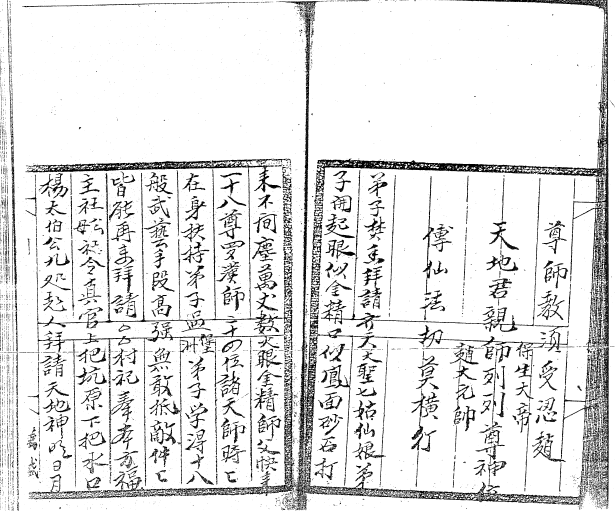 尊師教須受忍趙
保生大帝
天地君親師列列尊神位
趙大元帥
傳仙法切莫橫行
弟子焚香拜請齊天大聖七姑仙娘弟
子開起眼似金精口似鳳面砂石打
来不同塵萬丈教火眼金精師父快来
一十八尊罗漢師二十四位諸天師時亡
在身扶持弟子 弟子学淂十八
般武藝手段高强無敢抵敵件亡
皆能再来拜請 村祀奉 福
主社 公 令真官上把坑源下把水口
楊太伯公九处 人拜請天地神 日月